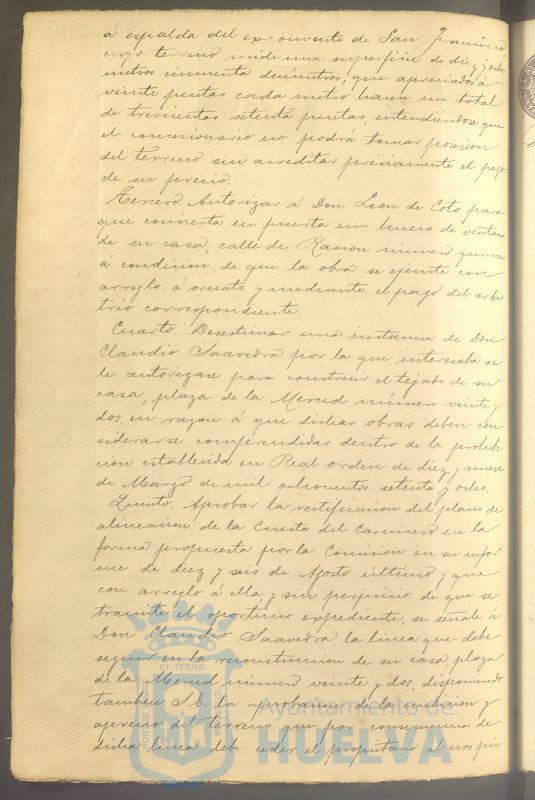 á espalda del ex-convento de San Francisco
cuyo terreno mide una superficie de diez y ocho
metros cincuenta decimetros, que apreciados á
veinte pesetas cada metro hacen un total
de trescientas setenta pesetas, entendiéndose que
el concesionario no podrá tomar posesion
del terreno sin acreditar préviamente el pago
de su precio.
Tercero. Autorizar á Don Leon de Coto para
que convierta en puerta un hueco de ventana
de su casa, calle de Rascon número quince
á condicion de que la obra se ejecute con
arreglo á ornato y mediante el pago del arbi
trio correspondiente.
Cuarto. Desestimar una instancia de Don
Claudio Saavedra por la que interesaba se
le autorizase para construir el tejado de su
casa, plaza de la Merced número veinte y
dos, en razon á que dichas obras deben con
siderarse comprendidas dentro de la prohibi
cion establecida en Real orden de diez y nueve
de Marzo de mil ochocientos setenta y ocho.
Quinto. Aprobar la rectificacion del plano de
alineacion de la Cuesta del Carnicero en la
forma propuesta por la Comision en su infor
me de diez y seis de Agosto último y que
con arreglo á ella, y sin perjuicio de que se
tramite el oportuno expediente, se señale á
Don Claudio Saavedra la linea que debe
seguir en la reconstruccion de su casa plaza
de la Merced número veinte y dos, disponiendo
tambien S.E. la aprobacion de la medicion y
aprecio del terreno que por consecuencia de
dicha linea debe ceder el propietario al uso pú
Ayuntamiento de
HUELVA
ET TERRAE
PORTUS MARIS